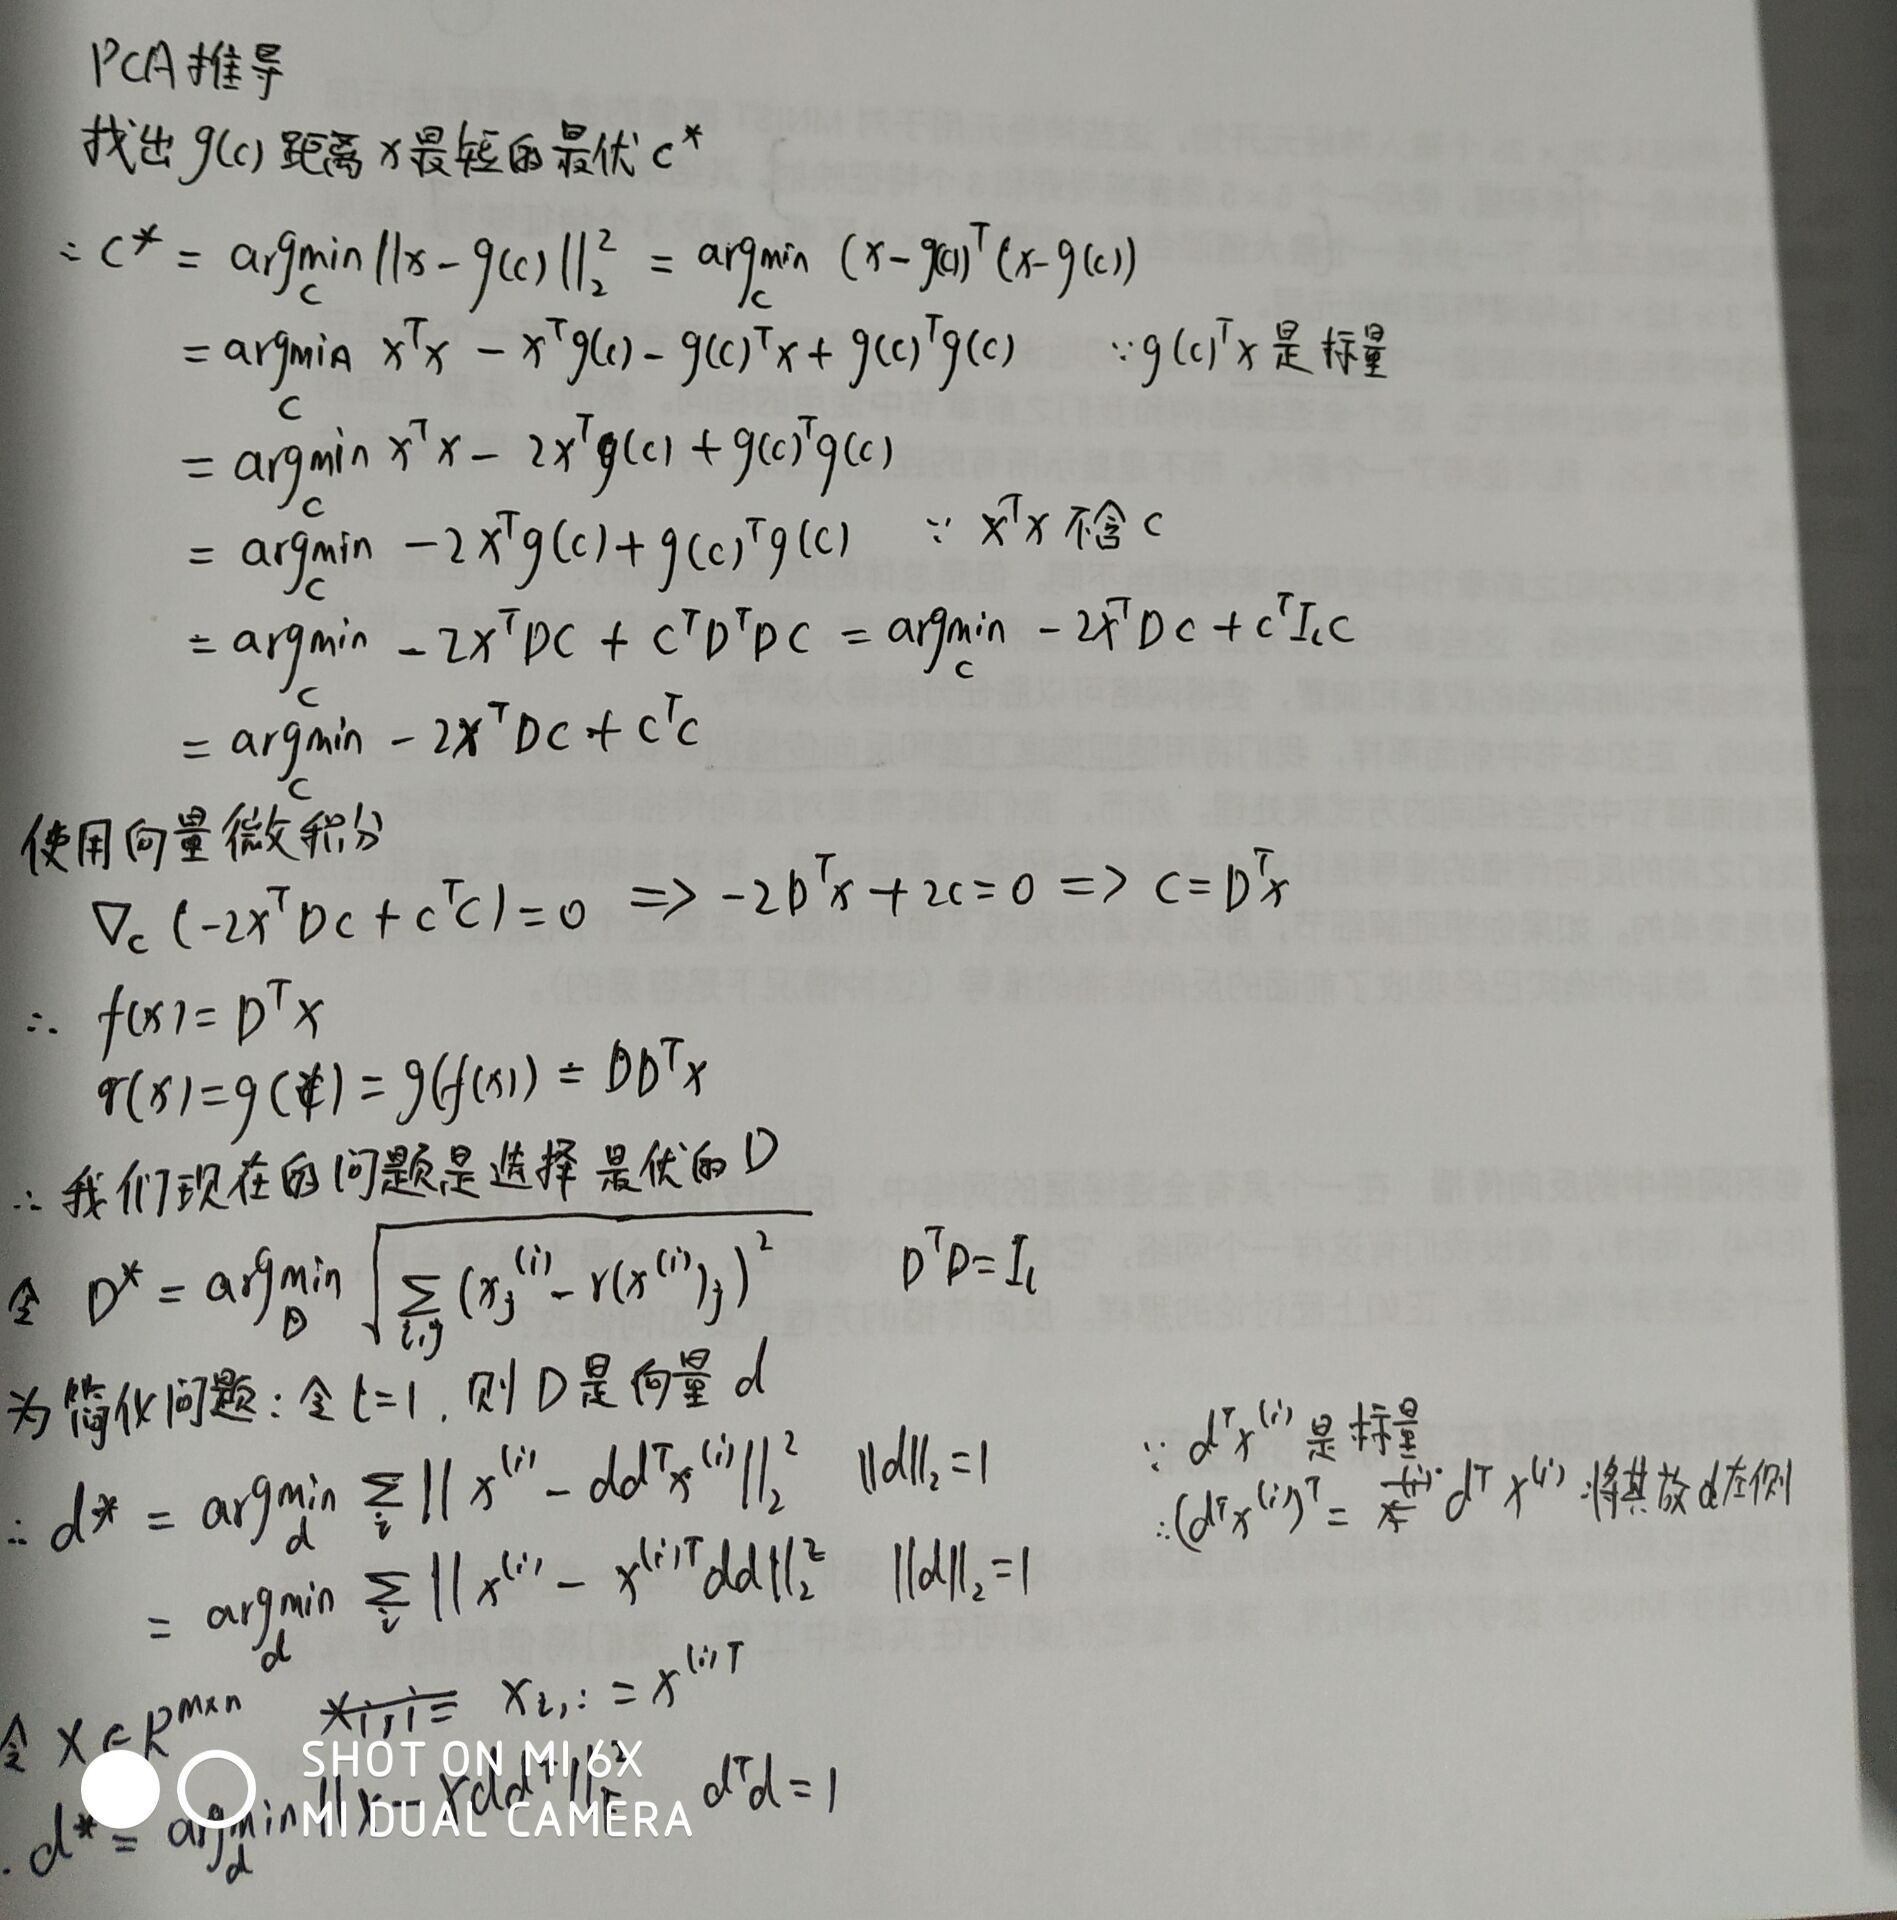 PCA推导
找出g(c)距离x最短的最优c*
∴ c* = argmin_c ||x-g(c)||₂² = argmin_c (x-g(c))ᵀ(x-g(c))
= argmin_c xᵀx - xᵀg(c) - g(c)ᵀx + g(c)ᵀg(c) ∵g(c)ᵀx是标量
= argmin_c xᵀx - 2xᵀg(c) + g(c)ᵀg(c)
= argmin_c -2xᵀg(c) + g(c)ᵀg(c) ∵ xᵀx不含c
= argmin_c -2xᵀDc + cᵀDᵀDc = argmin_c -2xᵀDc + cᵀI_l c
= argmin_c -2xᵀDc + cᵀc
使用向量微积分
∇_c (-2xᵀDc + cᵀc) = 0 => -2Dᵀx + 2c = 0 => c = Dᵀx
∴ f(x) = Dᵀx
r(x) = g( ) = g(f(x)) = DDᵀx
∴我们现在的问题是选择最优的D
令 D* = argmin_D √(∑_{i,j} (x_j^{(i)} - r(x^{(i)})_j)²) DᵀD = I_l
为简化问题:令l=1,则D是向量d
∴ d* = argmin_d ∑_i ||x^{(i)} - ddᵀx^{(i)}||₂² ||d||₂=1 ∵ dᵀx^{(i)}是标量
= argmin_d ∑_i ||x^{(i)} - x^{(i)T}dd||₂² ||d||₂=1 ∴(dᵀx^{(i)})ᵀ = dᵀx^{(i)} 将其放d左侧
令 X∈R^{m×n} X_{i,:} = x^{(i)T}
SHOT ON MI 6X
MI DUAL CAMERA
∴ d* = argmin_d ||X - Xddᵀ||_F² dᵀd = 1